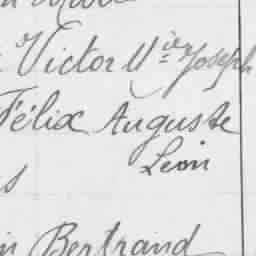 Victor Vier Joseph
Félix Auguste
Léon
s
in Bertrand